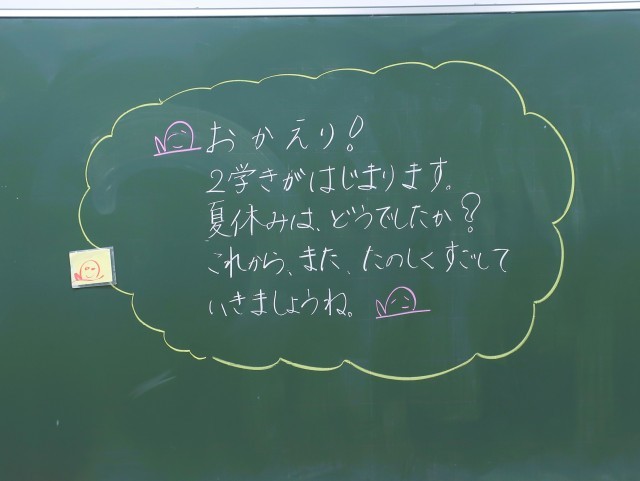 おかえり!
2学きがはじまります。
夏休みは、どうでしたか?
これから、また、たのしくすごして
いきましょうね。